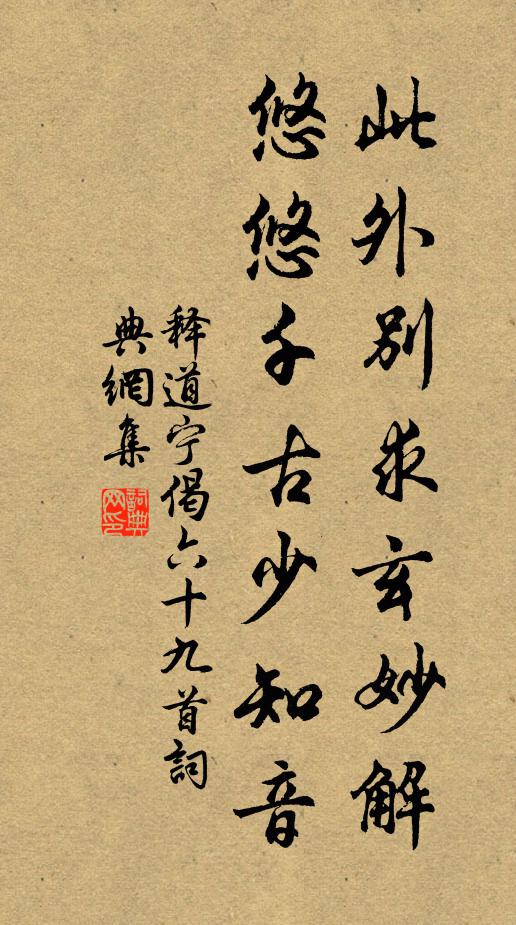 此外别求玄妙解
悠悠千古少知音
释道宁偈六十九首詞
典網集
詞典网印